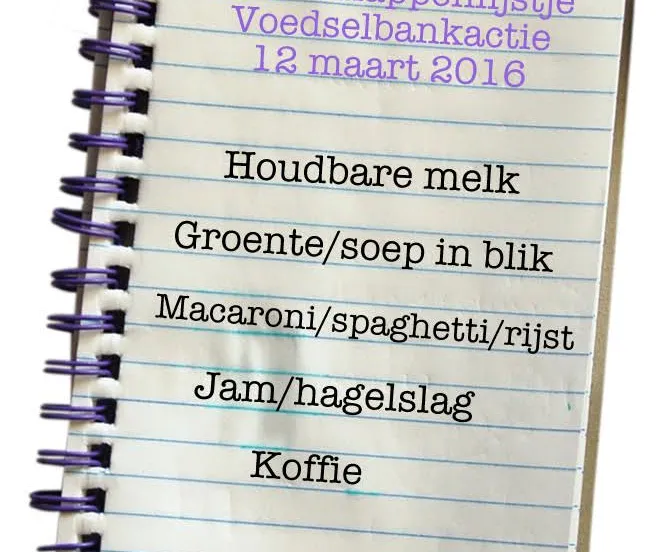 Voedselbankactie
12 maart 2016
Houdbare melk
Groente/soep in blik
Macaroni/spaghetti/rijst
Jam/hagelslag
Koffie